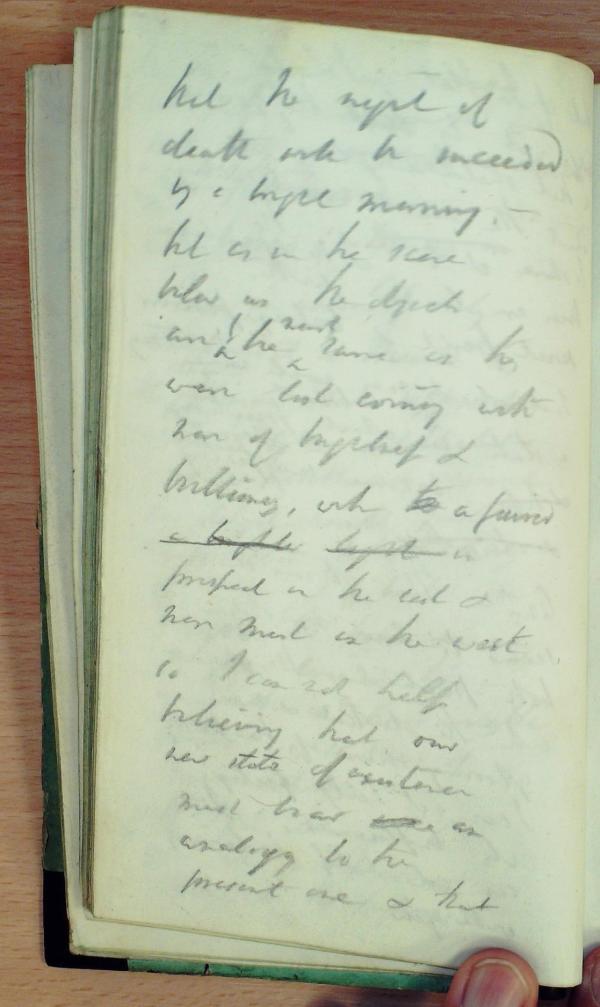 that the night of
death will be succeeded
by a bright morning. –
but as in the scene
below us the objects
are the same as they
were but coming with
more of brightness &
brilliancy, with a fairer
a brighter light in
prospect in the east &
more mist in the west
so I can not help
believing that our
new state of existence
must bear an
analogy to the
present one & that